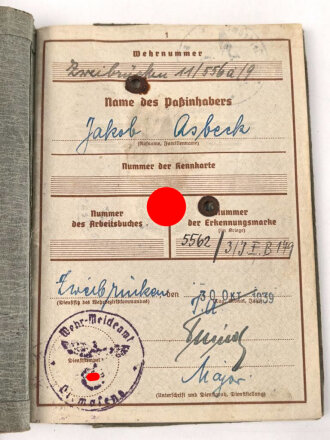 1
Wehrnummer
Zweibrücken 11/556a/9
Name des Paßinhabers
Jakob Asbeck
(Rufname, Familienname)
Nummer der Kennkarte
Nummer
des Arbeitsbuches
Nummer
der Erkennungsmarke
(im Kriege)
5562 / 3/J.E.B 179
Zweibrücken, den 30. OKT. 1939
(Dienstsitz des Wehrbezirkskommandos)
Wehr-Meldeamt
Pirmasens
Major
(Unterschrift und Dienstgrad, Dienststellung)